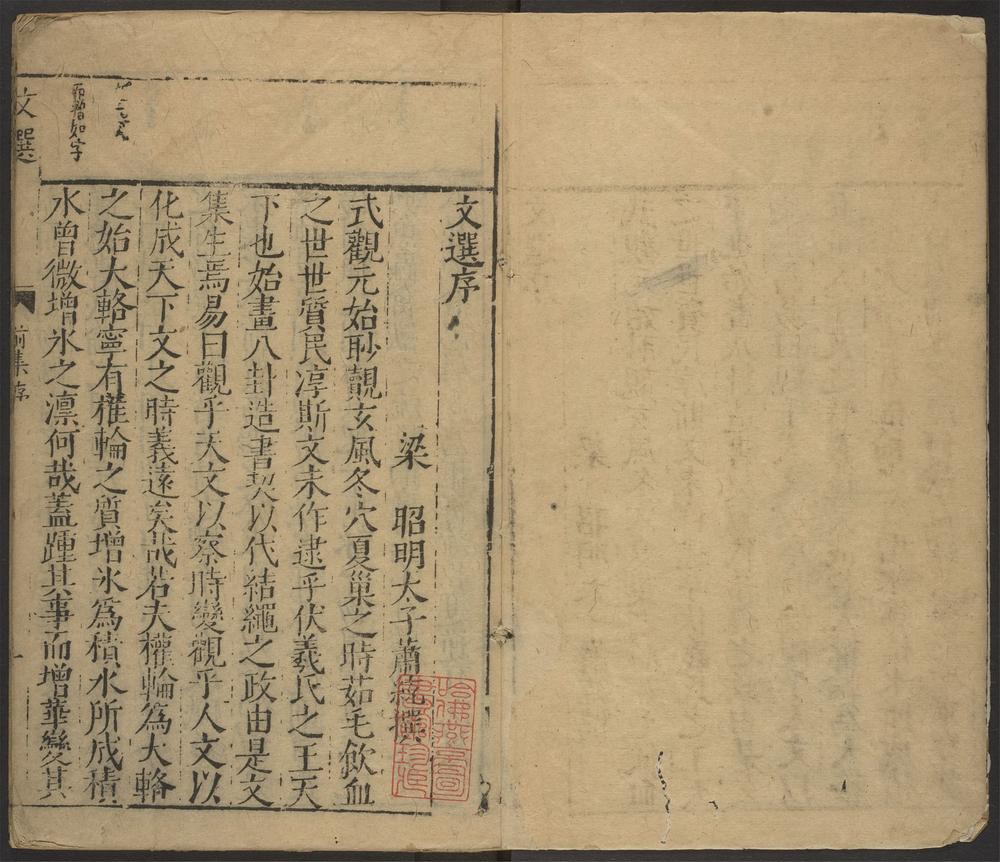 文選序
梁 昭明太子蕭統撰
式觀元始眇覿玄風冬穴夏巢之時茹毛飲血
之世世質民淳斯文未作逮乎伏羲氏之王天
下也始畫八卦造書契以代結繩之政由是文
集生焉易曰觀乎天文以察時變觀乎人文以
化成天下文之時義遠矣哉若夫權輪為大輅
之始大輅寧有權輪之質增氷為積水所成積
水曽微增氷之凛何哉蓋踵其事而增華變其
如字
文選
前集序
哈佛燕京圖
書館珍藏